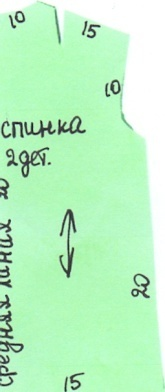 10
15
10
спинка
2 дет.
средняя линия 20
20
15